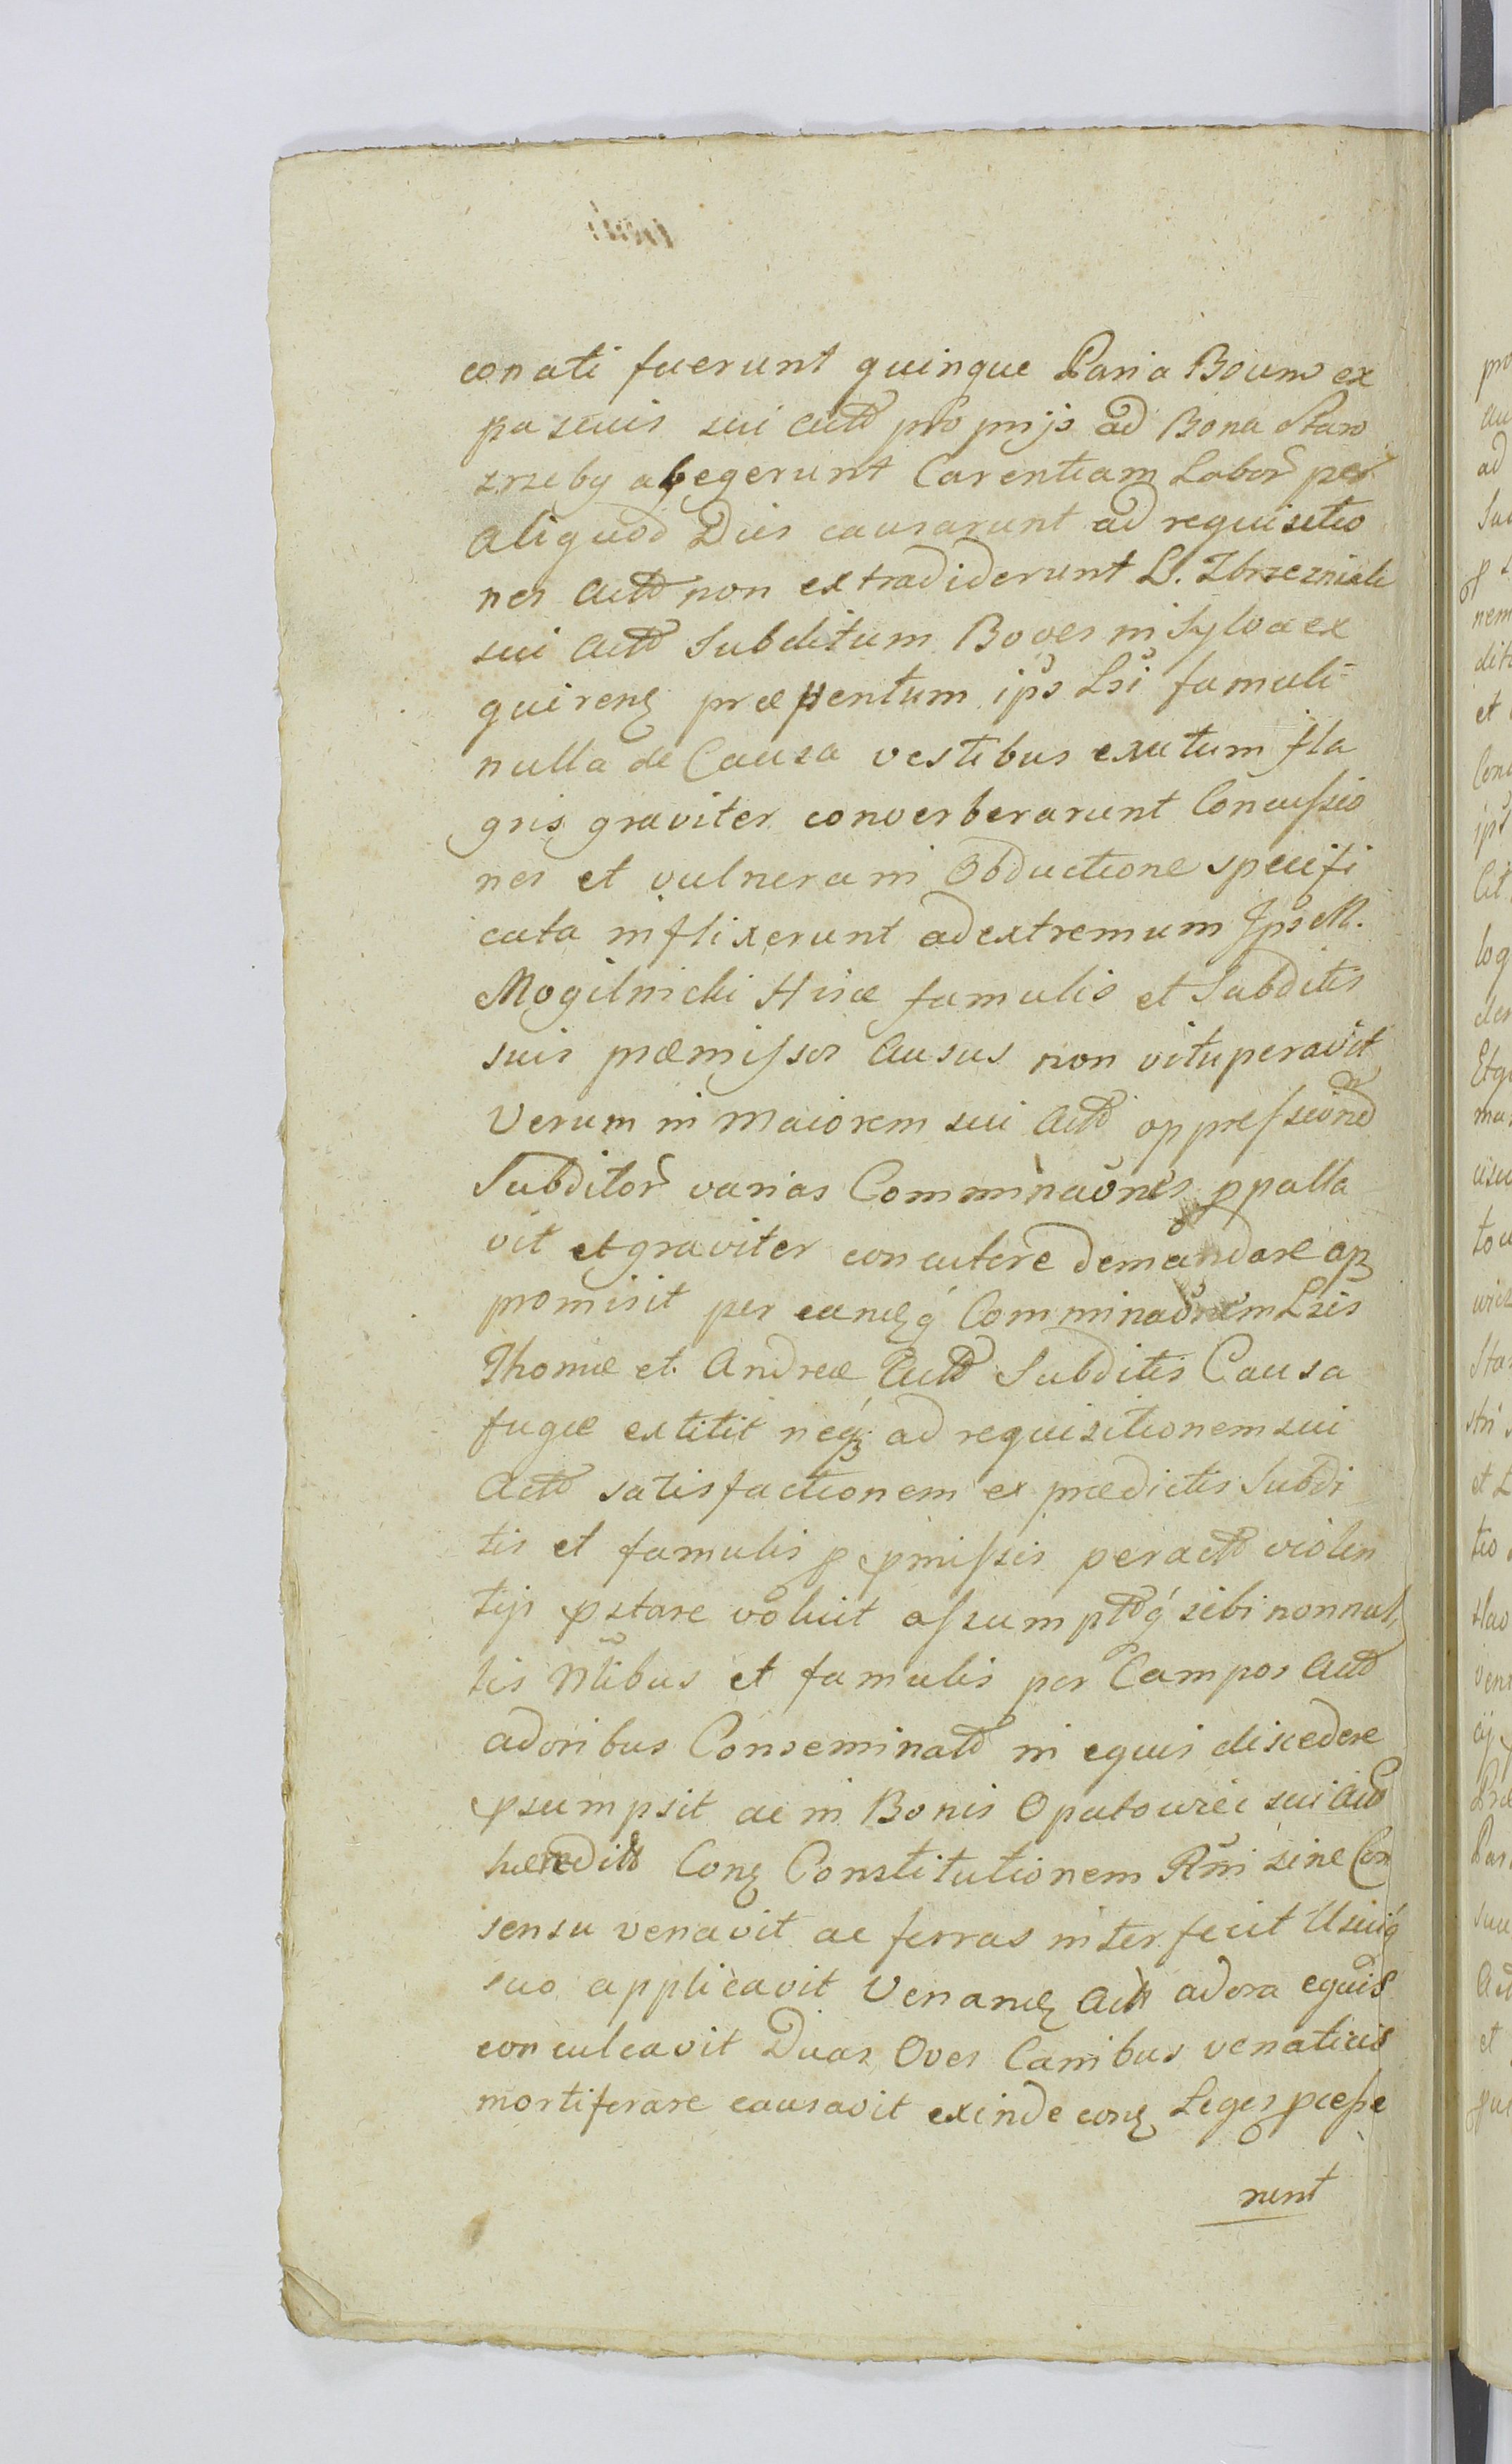 conati fuerunt quinque Paria Boum ex
pascuis sui Actō proprijs ad Bona Staro
zrzeby abegerunt Carentiam Labor per
aliquod Dies causarunt ad requisitio
nes Actō non extradiderunt L. Zbrzezniak
sui Actō Subditum Boves in Sylva ex
quirenę præpentum ips Lsi famuli
nulla de Causa vestibus exutum fla
gris graviter converberarunt Concussio
nes et vulnera in Obductione specifi
cata inflixerunt ad extremum Ips M.
Mogilnicki Hisce famulis et Subditis
suis præmissos Ausus non vituperavit
Verum in maiorem sui Actō oppressionē
Subditor varias Comminaōnes ppalla
vit et graviter concutere demandare ap
promisit per eandęq́ Comminaōnem Lsis
Thomæ et Andreæ Actō Subditis Causa
fugæ extitit neqꝫ ad requisitionem sui
Actō satisfactionem ex prædictis Subdi
tis et famulis p pmissis peractō violen
tijs pstare voluit assumptōq́ sibi nonnul
lis Ntibus et famulis per Campos Actō
adoribus Conseminatō in equis discedere
psumpsit ac in Bonis Opatowiec sui Actō
hæredit Conę Constitutionem Rni sine Con
sensu venavit ac ferras interfecit Usuiq́
suo applicavit Venandę Actō adora equis
conculcavit Duas Oves Canibus venaticis
mortiferare causavit exinde conę Leges pcesse
runt